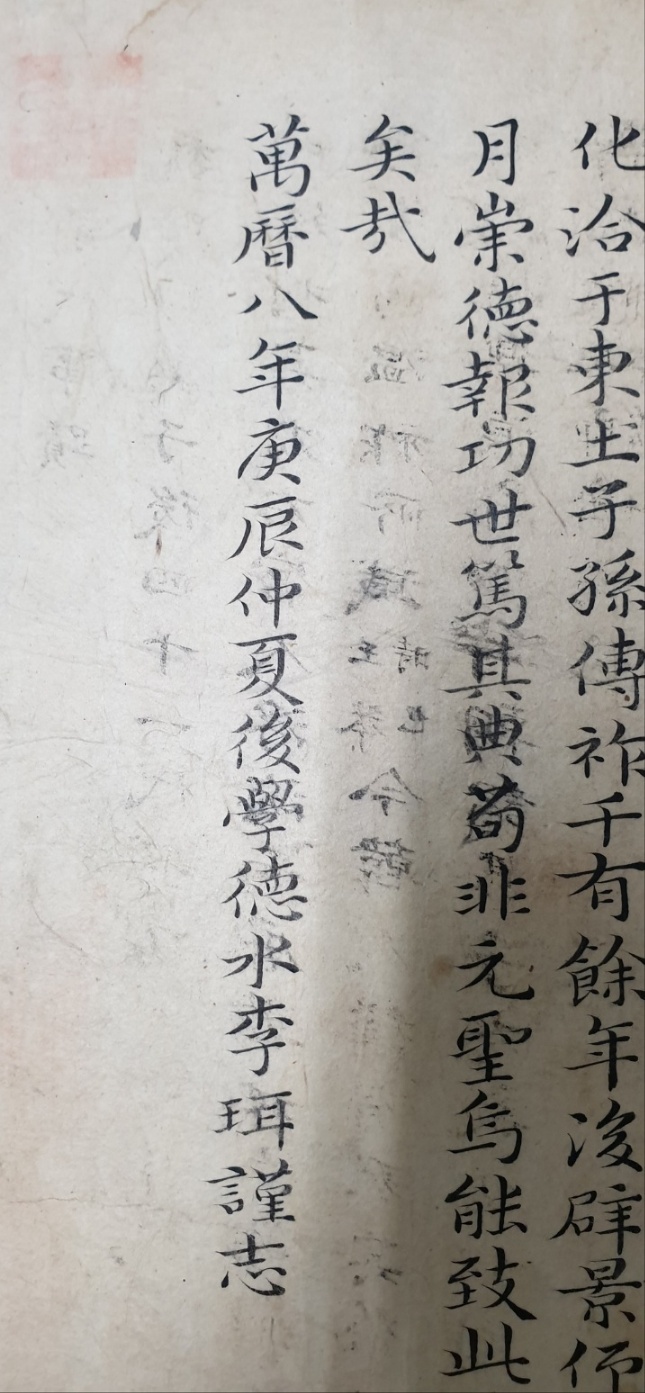 化洽于東土子孫傳祚千有餘年後辟景仰
月崇德報功世篤其典苟非元聖烏能致此
矣哉
萬曆八年庚辰仲夏後學德水李珥謹志